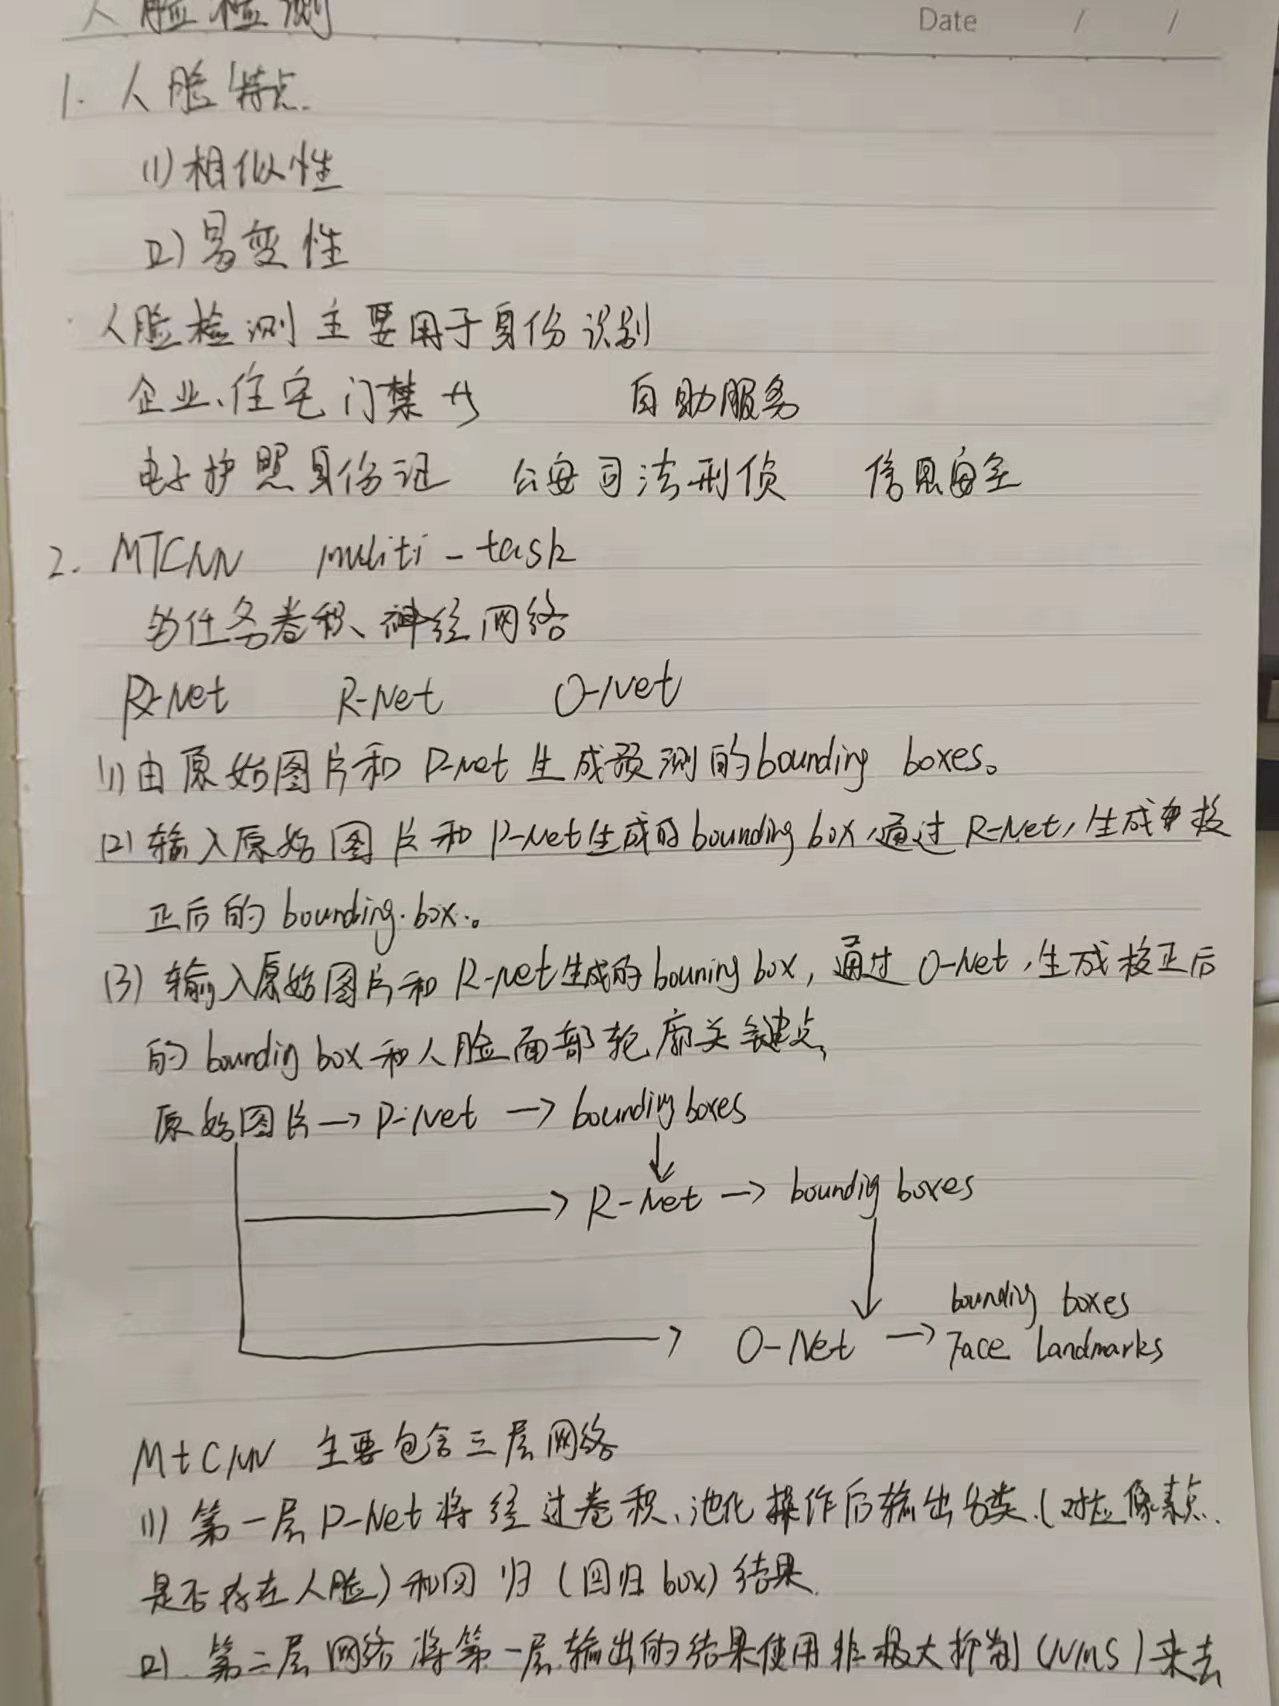 人脸检测
Date / /
1. 人脸特点.
(1) 相似性
(2) 易变性
人脸检测主要用于身份识别
企业、住宅门禁 自助服务
电子护照身份证 公安司法刑侦 信息安全
2. MTCNN muliti-task
多任务卷积、神经网络
P-Net R-Net O-Net
(1) 由原始图片和P-Net生成预测的bounding boxes。
(2) 输入原始图片和P-Net生成的bounding box,通过R-Net,生成校
正后的bounding box.。
(3) 输入原始图片和R-Net生成的bouning box,通过O-Net,生成校正后
的boundig box和人脸面部轮廓关键点
原始图片→P-Net→bounding boxes
→R-Net→boundig boxes
bounding boxes
→ O-Net → Face Landmarks
MtCNN 主要包含三层网络
(1) 第一层P-Net将经过卷积、池化操作后输出分类(对应像素点
是否存在人脸)和回归(回归box)结果.
(2) 第二层网络将第一层输出的结果使用非极大抑制(NMS)来去